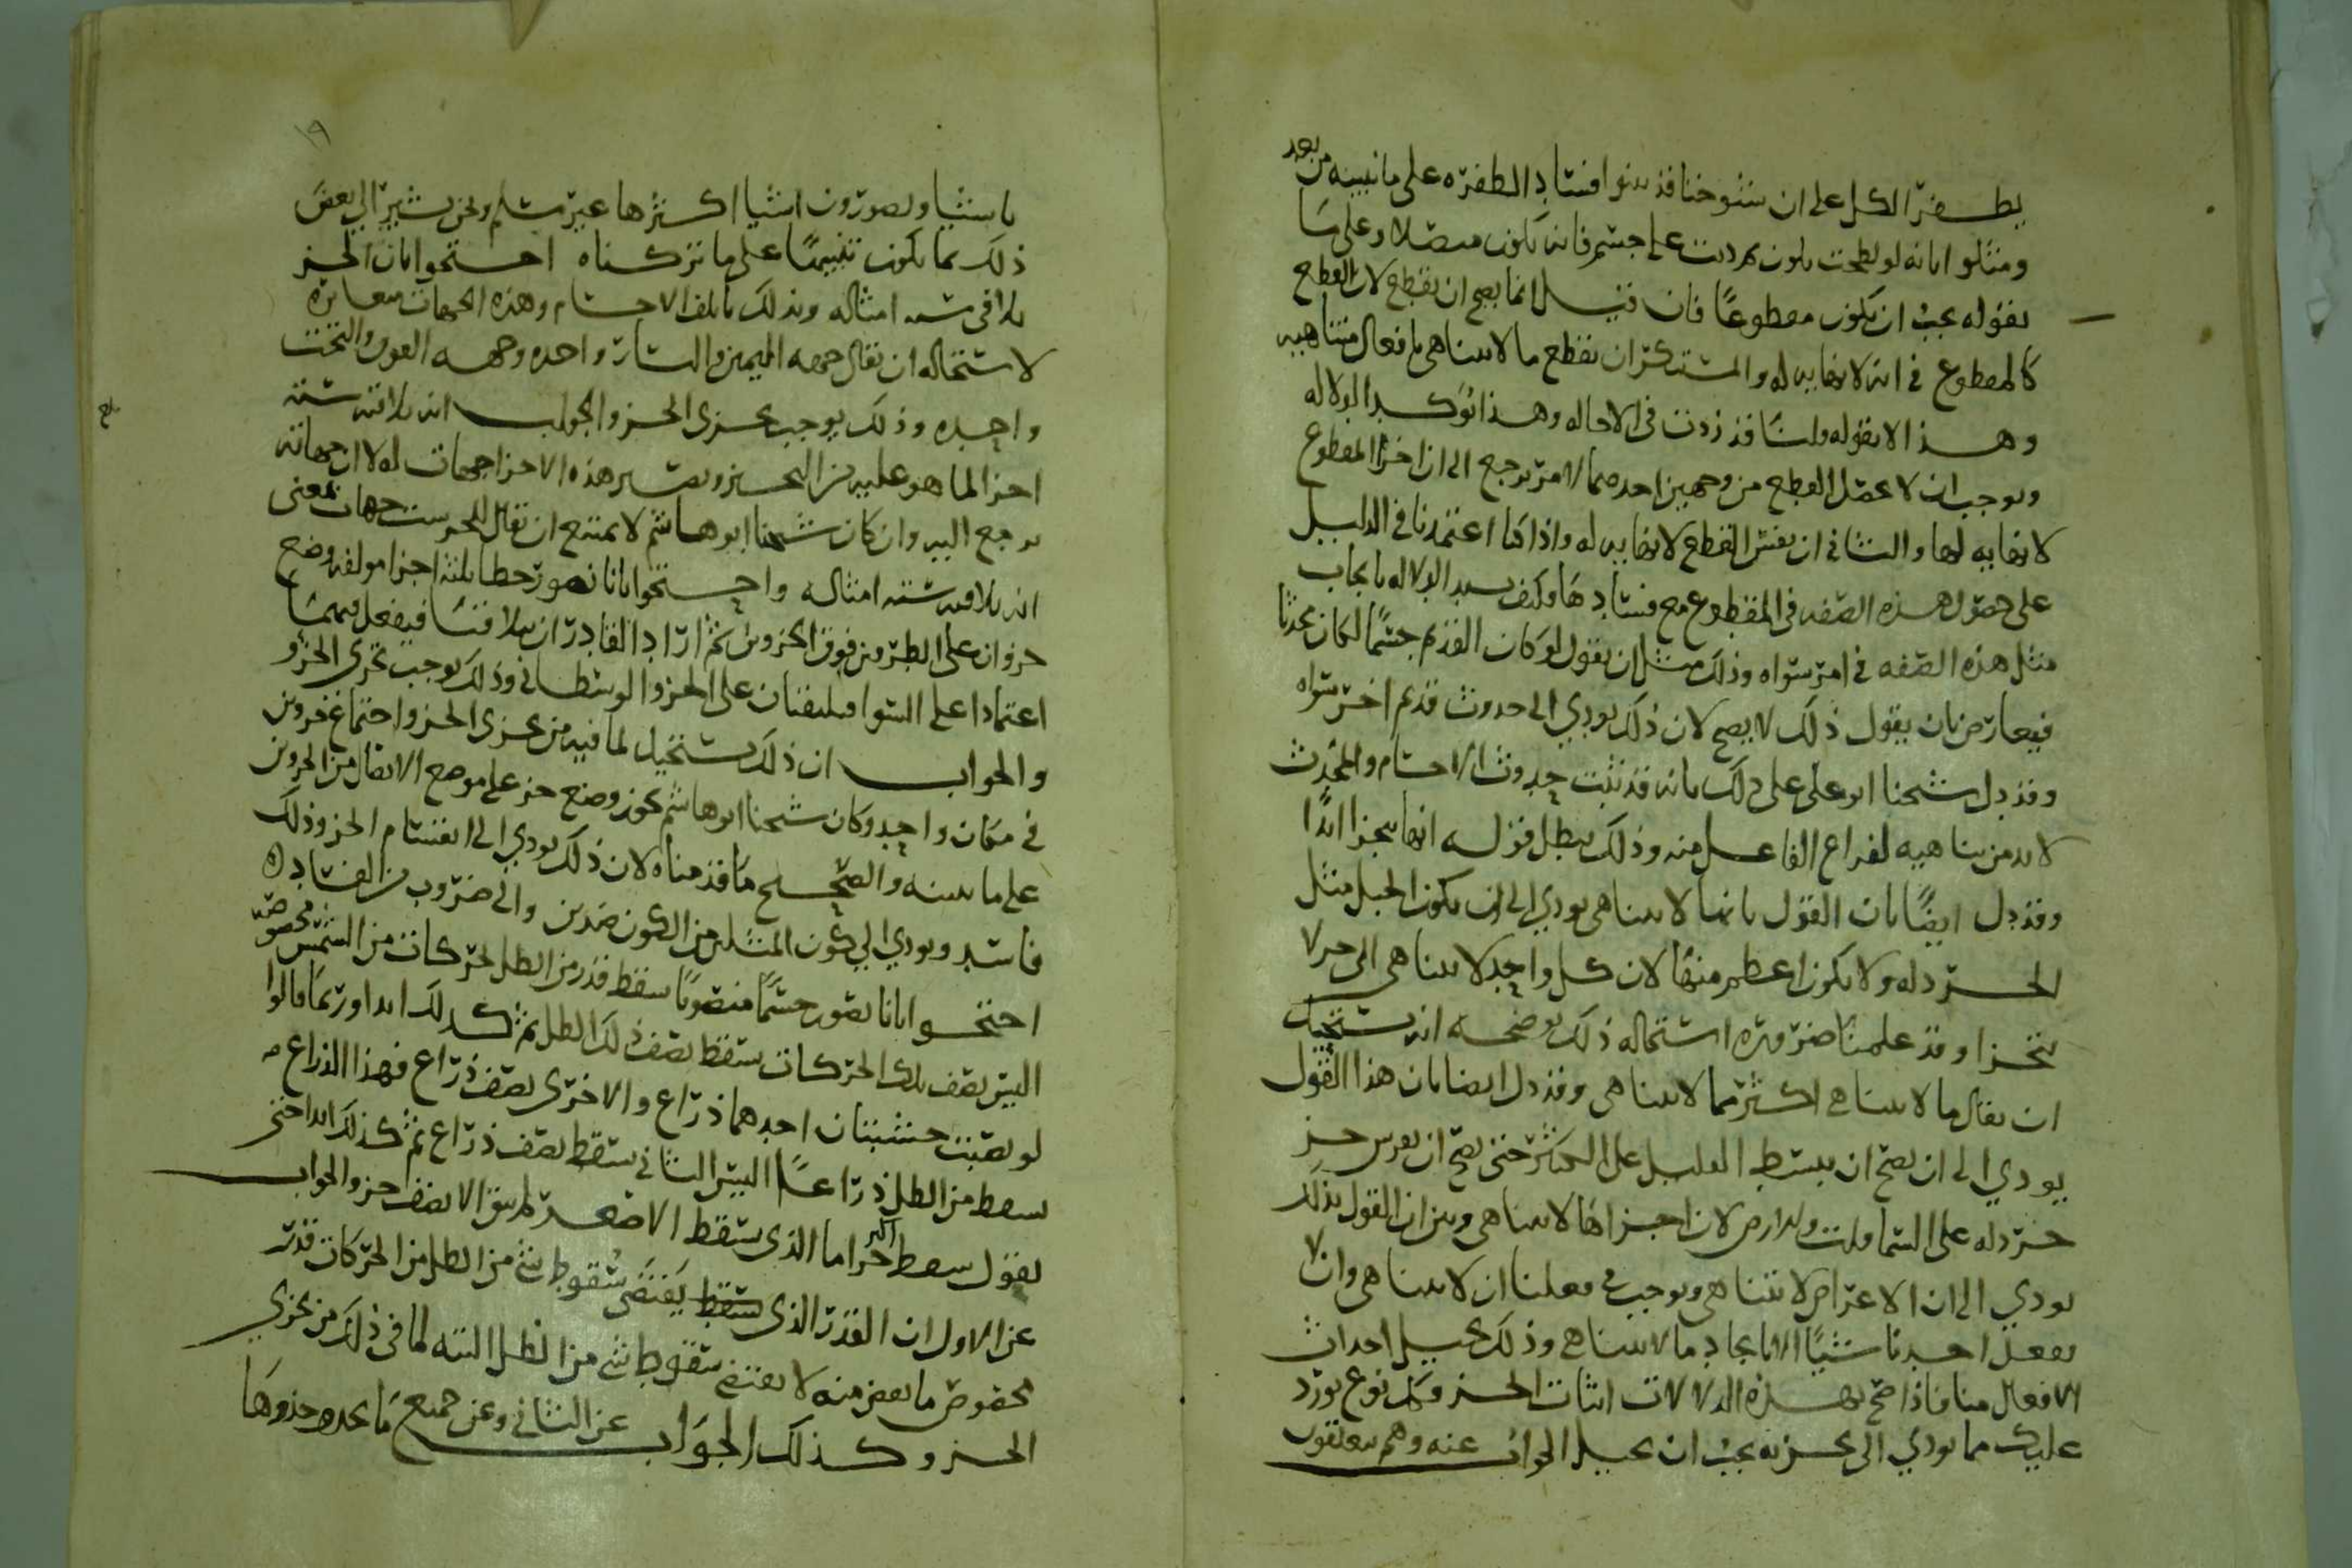 يطفر الكل على ان شيوخنا قد بينوا فساد الطفره على ما نبينه من بعد
ومثلوا بانه لو لطخت بلون مررت على جسم فانه يكون متصلا وعلى ما
يقوله يجب ان يكون مقطوعًا فان قيل انما يصح ان يقطع لان القطع
كالمقطوع في انه لا نهايه له والمستنكر ان يقطع ما لا يتناهى بافعال متناهيه
وهذا لا يقوله ولسنا قد زدت في الاحاله وهذا توكيد الدلاله
ويوجب ان لا يحصل القطع من وجهين احدهما لامر يرجع الى ان اجزا المقطوع
لا نهايه لها والثاني ان نفس القطع لا نهايه له واذا كنا اعتمدنا في الدليل
على حصول هذه الصفه في المقطوع مع فسادها وكيف يسد الدلاله بايجاب
مثل هذه الصفه في امر سواه وذلك مثل ان يقول لو كان القديم جسمًا لكان محدثا
فيعارض بان يقول ذلك لا يصح لان ذلك يودي الى حدوث قديم اخر سواه
وقد دل شيخنا ابو علي على ذلك بانه قد ثبت حدوث الاجسام والمحدث
لا بد من تناهيه لفراغ الفاعل منه وذلك يبطل قوله انها تتجزا ابدًا
وقد دل ايضًا بان القول بانها لا تتناهى يودي الى ان يكون الجبل مثل
الخردله ولا يكون اعظم منها لان كل واحد لا يتناهى الى جز لا
يتجزا وقد علمنا ضروره استحاله ذلك يوضحه انه يستحيل
ان يقال ما لا يتناهى اكثر مما لا يتناهى وقد دل ايضا بان هذا القول
يودي الى ان يصح ان يبسط القليل على الكثير حتى يصح ان يفرش جز
خردله على السماوات والارض لان اجزاها لا تتناهى وبين ان القول بذلك
يودي الى ان الاعراض لا تتناهى ويوجب في فعلنا ان لا يتناهى وان لا
يفعل احدنا شيئًا الا بايجاد ما لا يتناهى وذلك يحيل احداث
الافعال منا فاذا صح بهذه الدلالات اثبات الجز فكل نوع يورد
عليك مما يودي الى تجزيه يجب ان يحيل الجواب عنه وهم يتعلقون
١٩
باشيا ويصورون اشيا اكثرها غير مسلم ونحن نشير الى بعض
ذلك بما يكون تنبيهًا على ما تركناه احتجوا بان الجز
يلاقي سته امثاله وبذلك تاتلف الاجسام وهذه الجهات متغايره
لاستحاله ان يقال جهه اليمين واليسار واحده وجهه الفوق والتحت
واحده وذلك يوجب تجزي الجز والجواب انه يلاقيه سته
اجزا لما هو عليه من التحيز وتصير هذه الاجزا جهات له لا ان جهاته
يرجع اليه وان كان شيخنا ابو هاشم لا يمتنع ان يقال للجز ست جهات بمعنى
انه يلاقيه سته امثاله واحتجوا بانا نصور خطا بثلثه اجزا مولفه وضع
جزوان على الطرفين فوق الجزوين ثم اراد القادر ان يتلاقيا فيفعل فيهما
اعتمادا على السوا فيلتقيان على الجزو الوسطاني وذلك يوجب تجزي الجزو
والجواب ان ذلك يستحيل لما فيه من تجزي الجزو واجتماع جزوين
في مكان واحد وكان شيخنا ابو هاشم يجوز وضع جز على موضع الاتصال من الجزوين
على ما بينه والصحيح ما قدمناه لان ذلك يودي الى انقسام الجز وذلك
فاسد ويودي الى كون المثلين من الكون ضدين والى ضروب من الفساد
احتجوا بانا نصور جسمًا منصوبًا سقط قدر من الظل لحركات من الشمس مخصوصه
اليس نصف تلك الحركات يسقط نصف ذلك الظل ثم كذلك ابدا وربما قالوا
لو نصبت خشبتان احدهما ذراع والاخرى نصف ذراع فهذا الذراع
يسقط من الظل ذراعًا اليس الثاني يسقط نصف ذراع ثم كذلك ابدا حتى
يقول يسقط الاكبر جزا ما الذي يسقط الاصغر لم يبق الا نصف جز والجواب
عن الاول ان القدر الذي يسقط يقتضي سقوط شي من الظل من الحركات قدر
مخصوص ما نقص منه لا يقتضي سقوط شي من الظل البته لما في ذلك من تجزي
الجز وكذلك الجواب عن الثاني وعن جميع ما يحدو حذوها